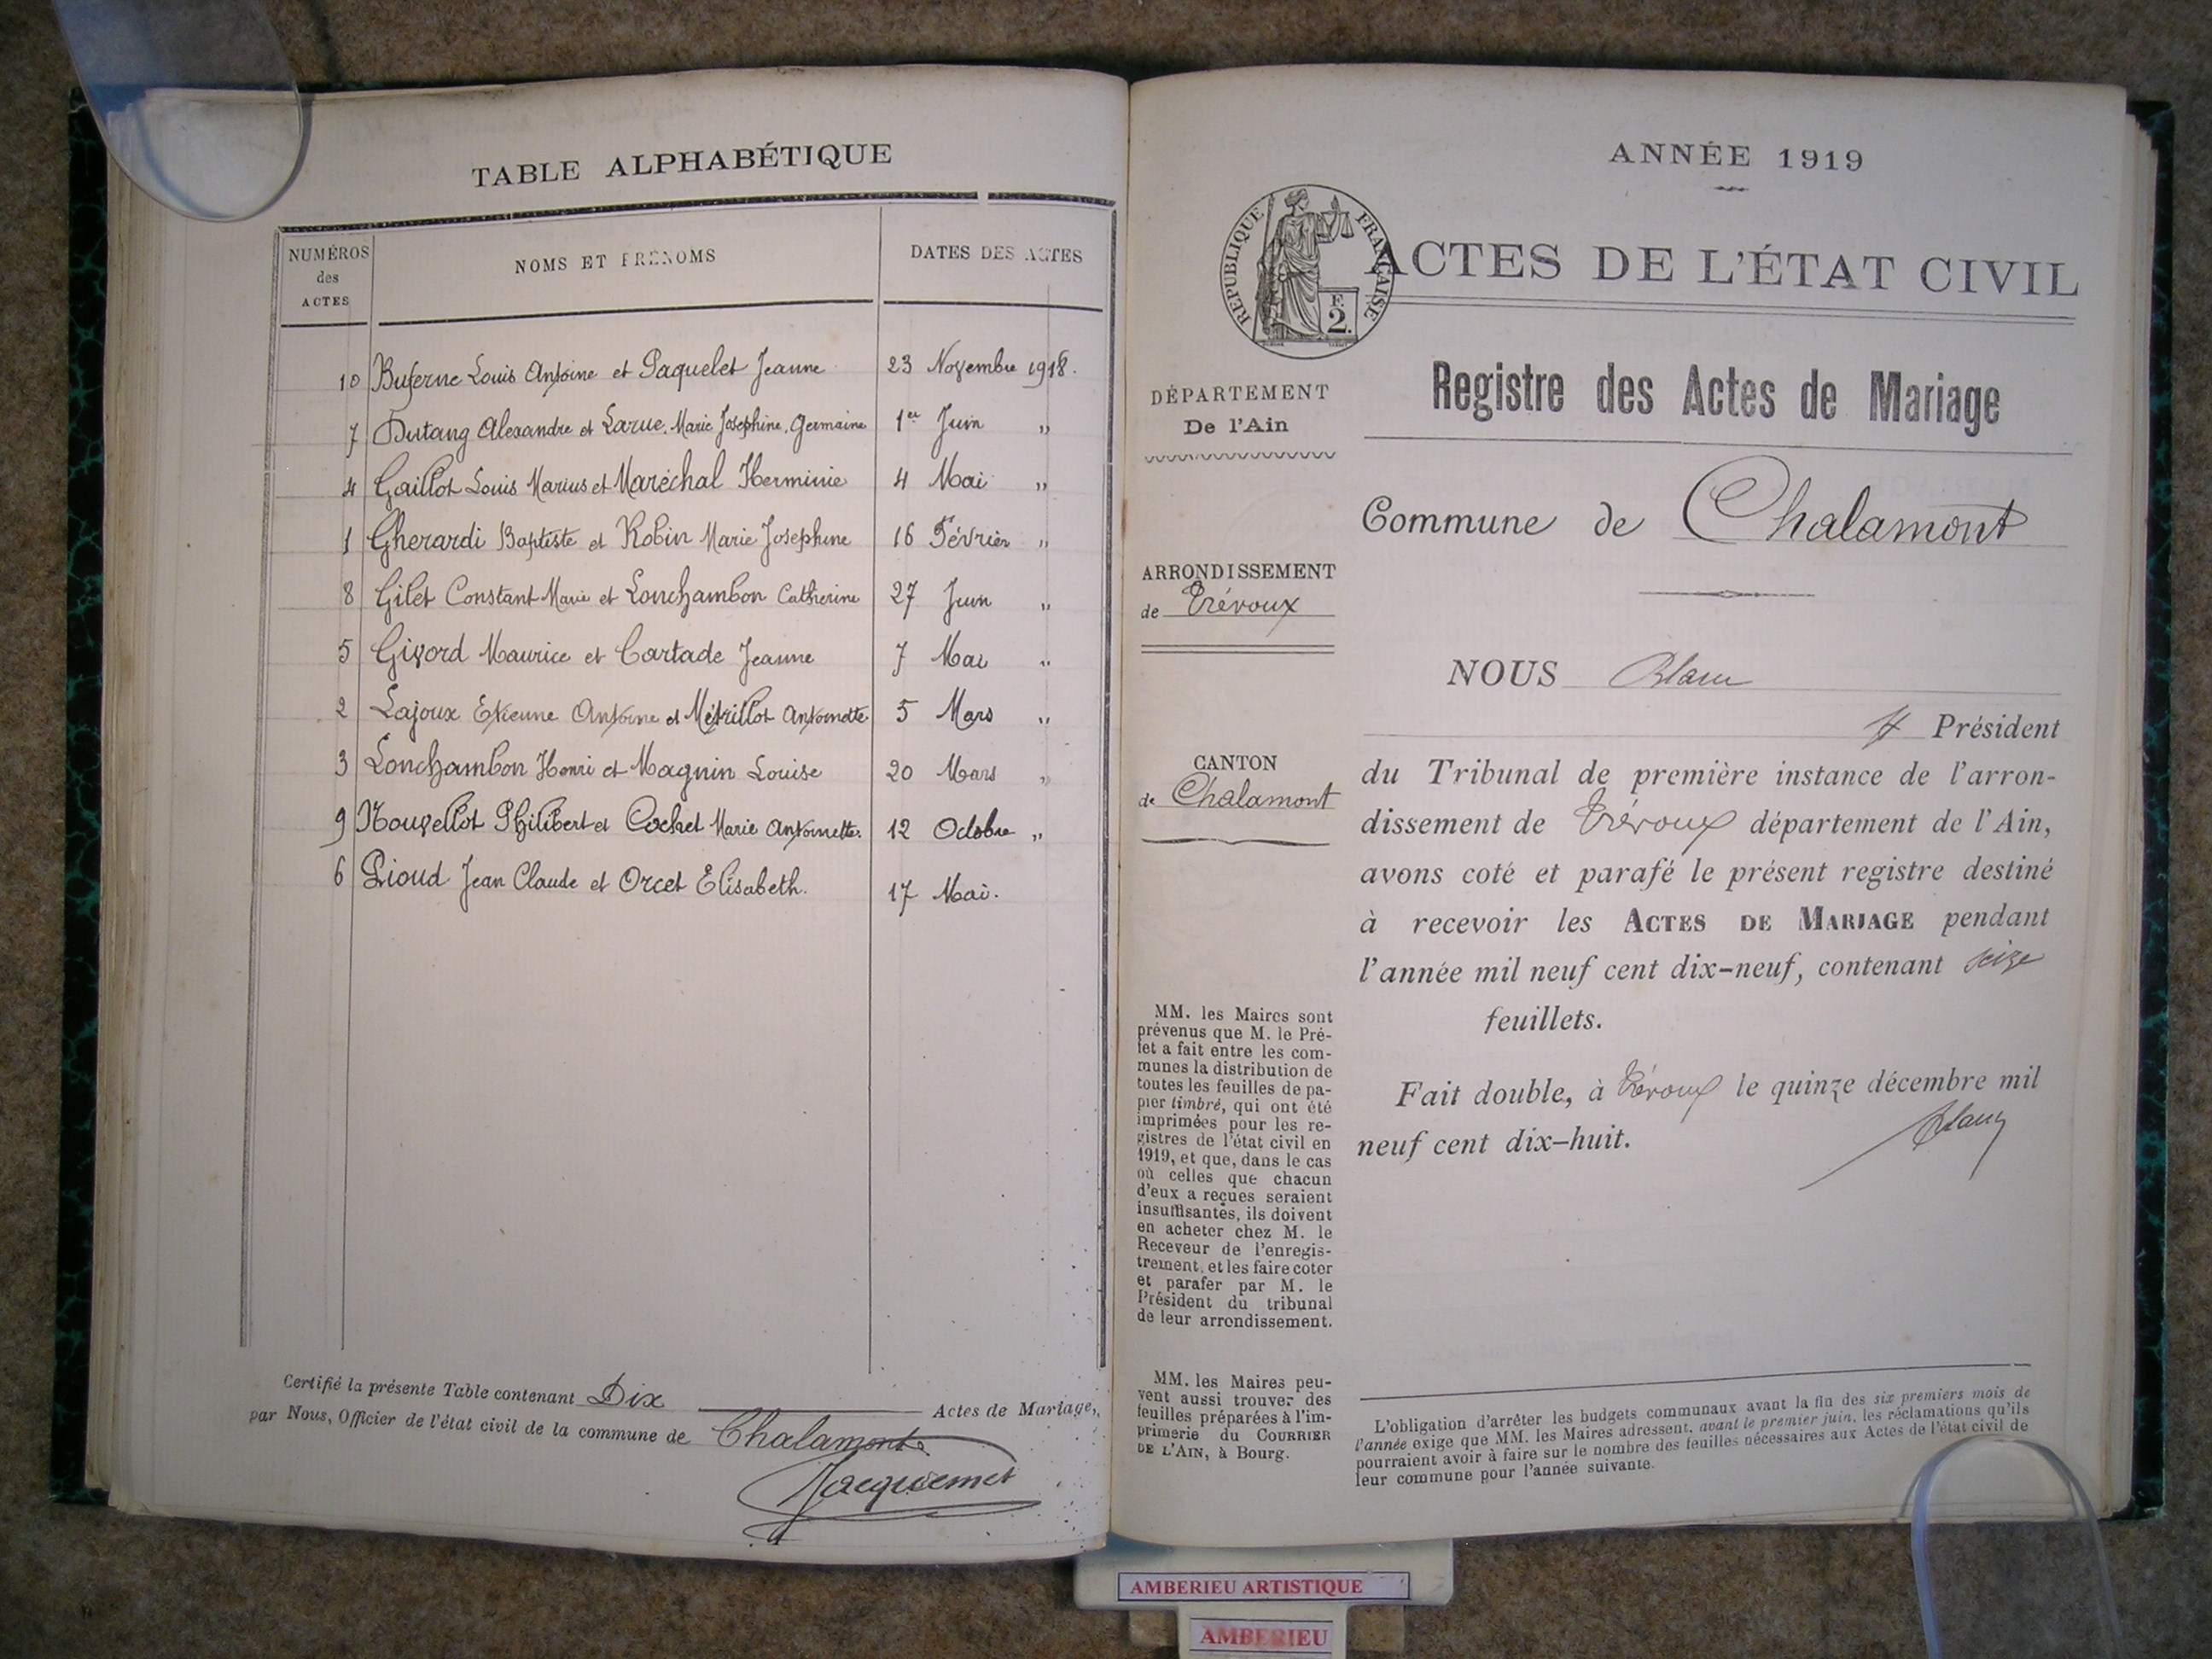 TABLE ALPHABÉTIQUE
NUMÉROS des ACTES
NOMS ET PRÉNOMS
DATES DES ACTES
10 Buferne Louis Antoine et Paquelet Jeanne 23 Novembre 1918.
7 Dutang Alexandre et Larue. Marie Josephine. Germaine 1er Juin "
4 Gaillot Louis Marius et Maréchal Herminie 4 Mai "
1 Gherardi Baptiste et Robin Marie Josephine 16 Février "
8 Gilet Constant Marie et Lonchambon Catherine 27 Juin "
5 Givord Maurice et Cartade Jeanne 7 Mai "
2 Lajoux Etienne Antoine et Métrillot Antoinette 5 Mars "
3 Lonchambon Henri et Magnin Louise 20 Mars "
9 Nouvellot Philibert et Cochet Marie Antoinette. 12 Octobre "
6 Pioud Jean Claude et Orcet Elisabeth. 17 Mai.
Certifié la présente Table contenant Dix Actes de Mariage,
par Nous, Officier de l'état civil de la commune de Chalamont
Jacquemet
ANNÉE 1919
RÉPUBLIQUE FRANÇAISE
F.
2.
ACTES DE L'ÉTAT CIVIL
Registre des Actes de Mariage
DÉPARTEMENT
De l'Ain
Commune de Chalamont
ARRONDISSEMENT
de Trévoux
CANTON
de Chalamont
NOUS Blanc
Président
du Tribunal de première instance de l'arron-
dissement de Trévoux département de l'Ain,
avons coté et parafé le présent registre destiné
à recevoir les ACTES DE MARIAGE pendant
l'année mil neuf cent dix-neuf, contenant seize
feuillets.
Fait double, à Trévoux le quinze décembre mil
neuf cent dix-huit.
Blanc
MM. les Maires sont
prévenus que M. le Pré-
fet a fait entre les com-
munes la distribution de
toutes les feuilles de pa-
pier timbré, qui ont été
imprimées pour les re-
gistres de l'état civil en
1919, et que, dans le cas
où celles que chacun
d'eux a reçues seraient
insuffisantes, ils doivent
en acheter chez M. le
Receveur de l'enregis-
trement, et les faire coter
et parafer par M. le
Président du tribunal
de leur arrondissement.
MM. les Maires peu-
vent aussi trouver des
feuilles préparées à l'im-
primerie du COURRIER
DE L'AIN, à Bourg.
L'obligation d'arrêter les budgets communaux avant la fin des six premiers mois de
l'année exige que MM. les Maires adressent, avant le premier juin, les réclamations qu'ils
pourraient avoir à faire sur le nombre des feuilles nécessaires aux Actes de l'état civil de
leur commune pour l'année suivante.
AMBERIEU ARTISTIQUE
AMBERIEU